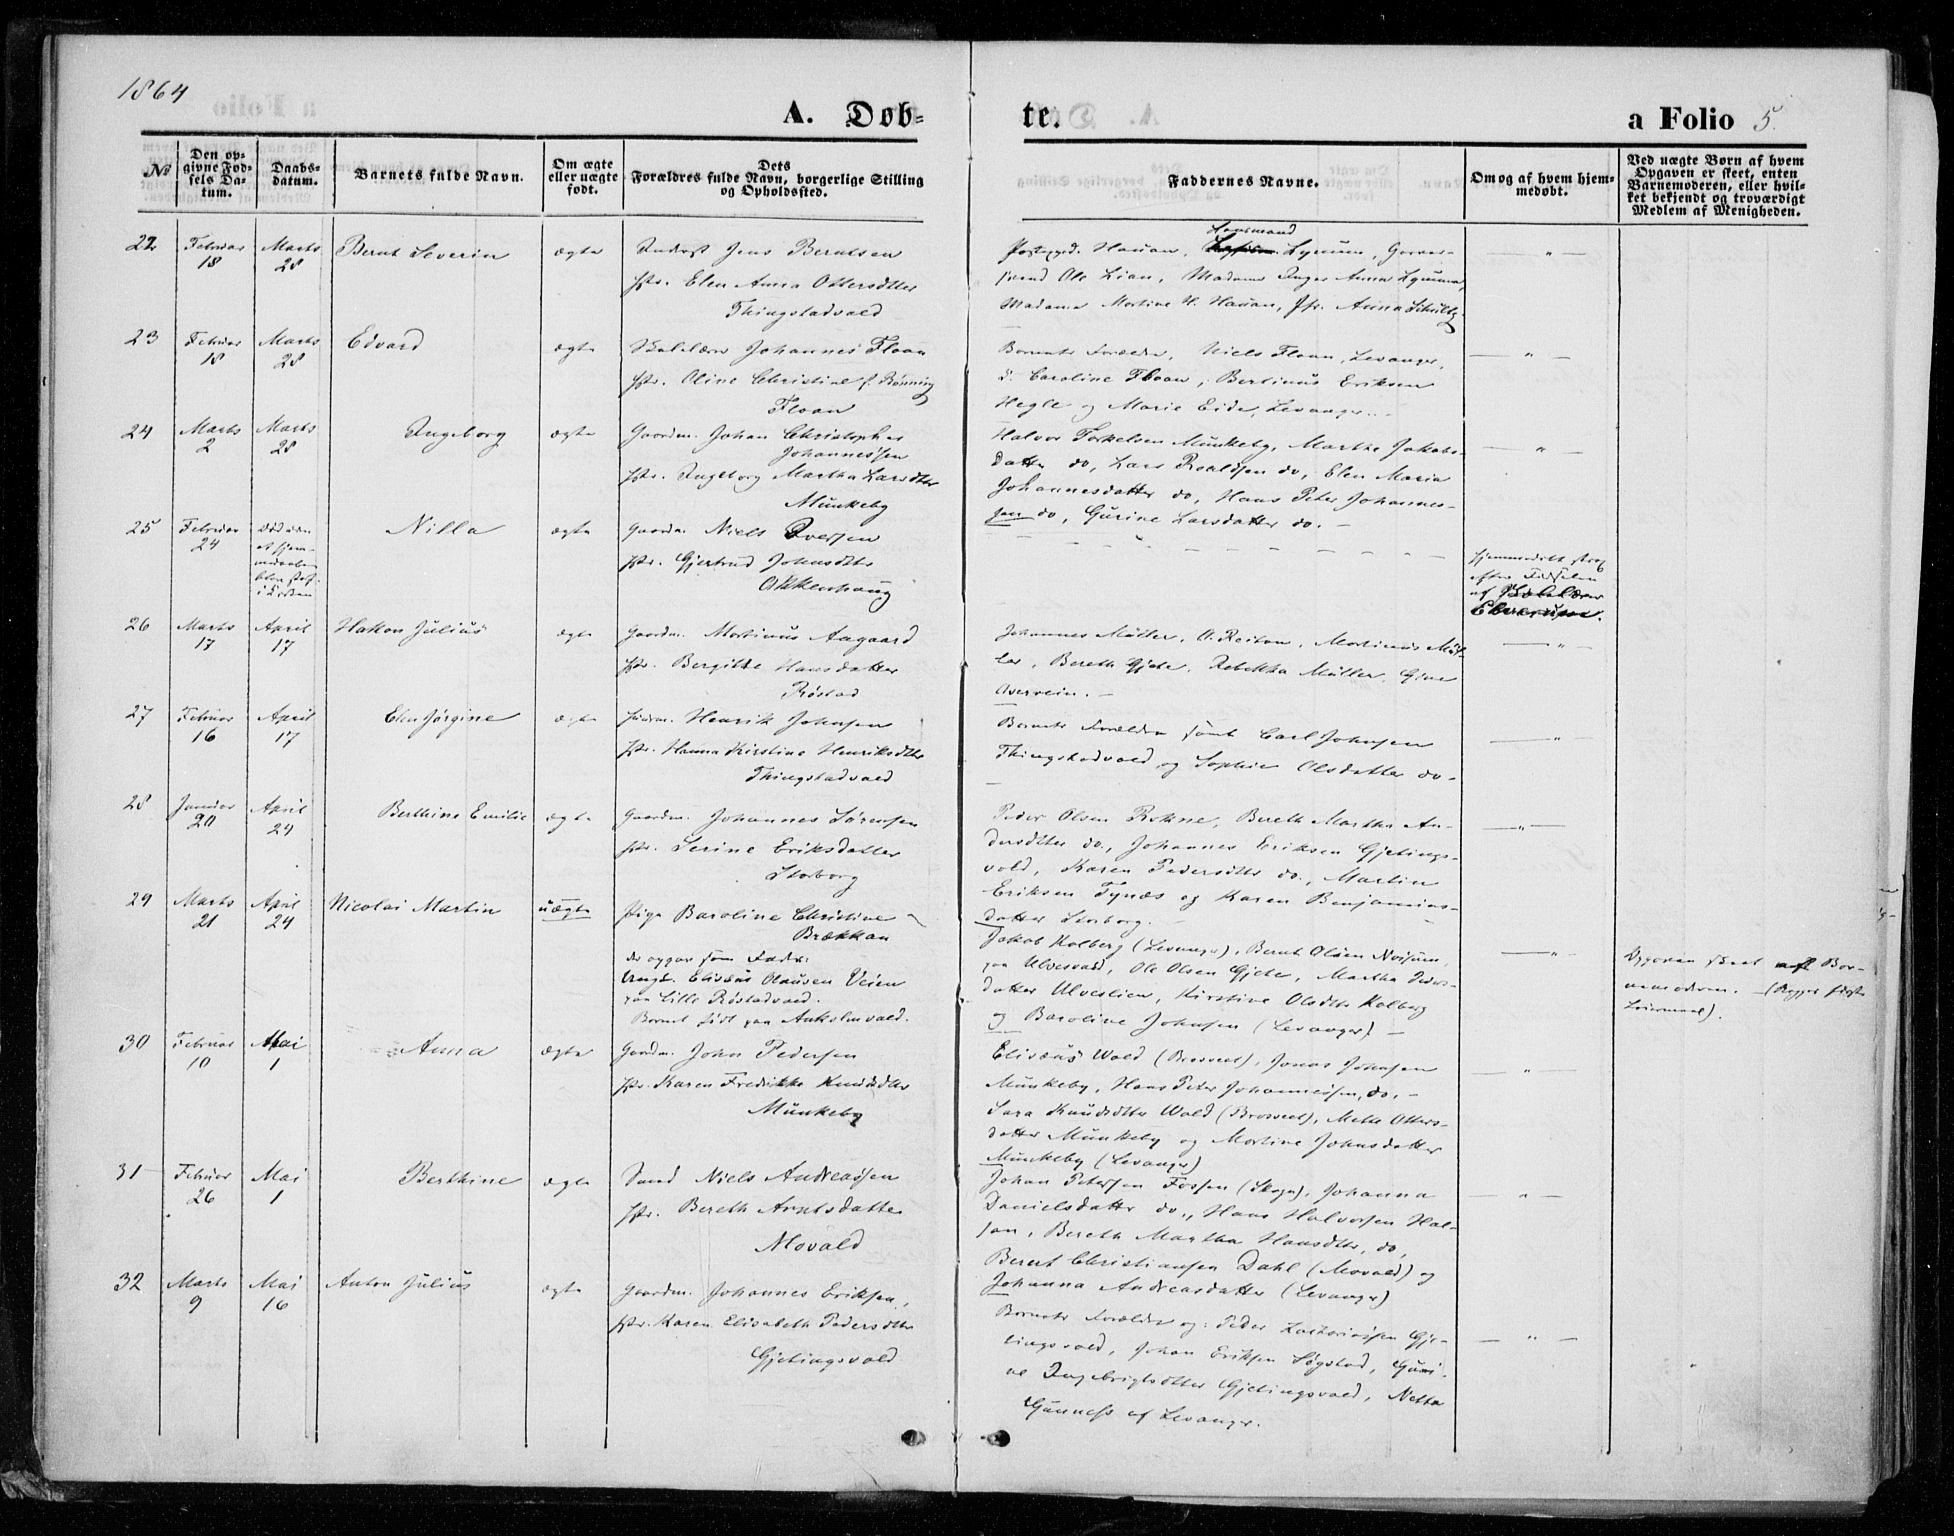 1864
A. Døb-
te.
a Folio 5.
№
Den op-
givne Fød-
sels Da-
tum.
Daabs-
datum.
Barnets fulde Navn.
Om ægte
eller uægte
født.
Dets
Forældres fulde Navn, borgerlige Stilling
og Opholdssted.
Faddernes Navne.
Om og af hvem hjem-
medøbt.
Ved uægte Børn af hvem
Opgaven er skeet, enten
Barnemoderen, eller hvil-
ket bekjendt og troværdigt
Medlem af Menigheden.
22 Februar 18 Marts 28 Bernt Severin ægte Jens Berntsen
Hstr. Elen Anna Ottersdtter
Thingstadvald
Hauan, Husmand Lynum,
Ole Lian, Madame Inger Anna Lynum,
Madame Martine H. Hauan, Jfr. Anna Schultz
23 Februar 18 Marts 28 Edvard ægte Skolelærer Johannes Floan
Hstr. Oline Christine f. Rönning
Floan
Barnets Forældre, Niels Floan, Levanger,
d. Caroline Floan, Bertinus Eriksen
Hegle og Marie Eide, Levanger.
24 Marts 2 Marts 28 Ingeborg ægte Gaardm. Johan Christopher
Johannesen
Hstr. Ingeborg Martha Larsdtter
Munkeby
Halvor Torkelsen Munkeby, Marthe Jakobs-
datter do, Lars Roaldsen do, Elen Maria
Johannesdatter do, Hans Peter Johannes-
sen do, Gurine Larsdatter do.
25 Februar 24 Nilla ægte Gaardm. Niels Iversen
Hstr. Gjertrud Johnsdtter
Okkenhaug
Hjemmedøbt strax
efter Fødselen
af
26 Marts 17 April 17 Hakon Julius ægte Gaardm. Martinus Aagaard
Hstr. Bergitte Hansdatter
Röstad
Johannes Müller, O. Reitan, Martinus Mül-
ler, Bereth Gjete, Rebekka Müller, Gine
Overrein.
27 Februar 16 April 17 Elen Jörgine ægte Husm. Henrik Johnsen
Hstr. Hanna Kirstine Henriksdtter
Thingstadvald
Barnets Forældre samt Carl Johnsen
Thingstadvald og Sophie Olsdatter do
28 Januar 20 April 24 Berthine Emilie ægte Gaardm. Johannes Sörensen
Hstr. Serine Eriksdatter
Storborg
Peder Olsen Rohne, Bereth Martha An-
dersdtter do., Johannes Eriksen Gjetings-
vold, Karen Pedersdtter do., Martin
Eriksen Tynæs og Karen Benjamins-
datter Storborg.
29 Marts 21 April 24 Nicolai Martin uægte Pige Baroline Christine
Brækkan
der opgav som Fader:
Ungk. Elisæus Olausen Veien
paa Lille Röstadvald.
Barnet födt paa Ankolmvald.
Jakob Kolberg (Levanger), Bernt Olsen
paa Ulvesvald, Ole Olsen Gjete, Martha Peders-
datter Ulveslien, Kirstine Olsdtter Kolberg
og Baroline Johnsen (Levanger)
Opgaven skeet af Bar-
nemoderen. (Begges første
Leiermaal).
30 Februar 10 Mai 1 Anna ægte Gaardm. John Pedersen
Hstr. Karen Fredrikke Knudsdtter
Munkeby
Elisæus Wald, Jonas Johnsen
Munkeby, Hans Peter Johannessen, do.
Sara Knudsdtter Wold, Mette Otters-
datter Munkeby og Martine Johnsdatter
Munkeby (Levanger)
31 Februar 26 Mai 1 Berthine ægte Niels Andreassen
Hstr. Bereth Arntsdatter
Movald
Johan Petersen Fossen (Skogn), Johanna
Danielsdatter do., Hans Halvorsen Hal-
san, Bereth Martha Hansdtter, do,
Berent Christiansen Dahl (Movald) og
Johanna Andreasdatter (Levanger)
32 Marts 9 Mai 16 Anton Julius ægte Gaardm. Johannes Eriksen,
Hstr. Karen Elisabeth Pedersdtter
Gjetingsvold
Barnets Forældre og: Peder Zachariassen Gje-
tingsvold, Johan Eriksen Søgstad, Guru-
ne Ingebrigtsdtter Gjetingsvold, Netta
Gunness af Levanger.